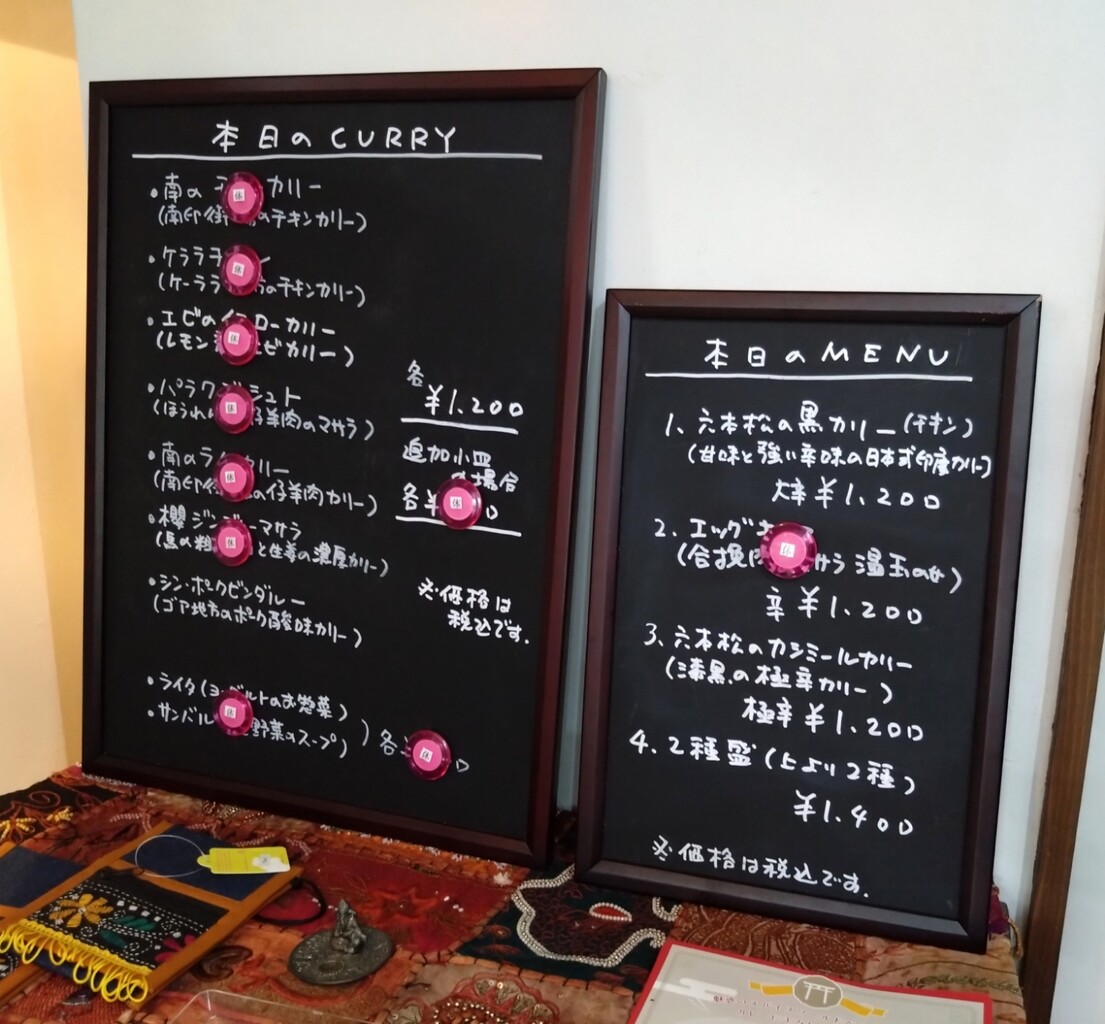 本日のCURRY
・南の カリー
(南印街 のチキンカリー)
・ケララチ ー
(ケーララ のチキンカリー)
・エビの ローカリー
(レモン ビカリー)
・パラク シュト
(ほうれ 仔羊肉のマサラ)
・南のラ カリー
(南印街 の仔羊肉カリー)
・櫻ジン ーマサラ
(馬の粗 と生姜の濃厚カリー)
・シン・ポークビンダルー
(ゴア地方のポーク酸味カリー)
・ライタ(ヨーグルトのお惣菜)
・サンバル 野菜のスープ)
各
休
各
¥1.200
追加小皿
の場合
各¥ 0
※価格は
税込です.
本日のMENU
1、六本松の黒カリー(チキン)
(甘味と強い辛味の日本式印度カリー)
大辛¥1.200
2、エッグ
(合挽 温玉のせ)
休
辛¥1.200
3、六本松のカシミールカリー
(漆黒の極辛カリー)
極辛¥1.200
4、2種盛(上より2種)
¥1.400
※価格は税込です.